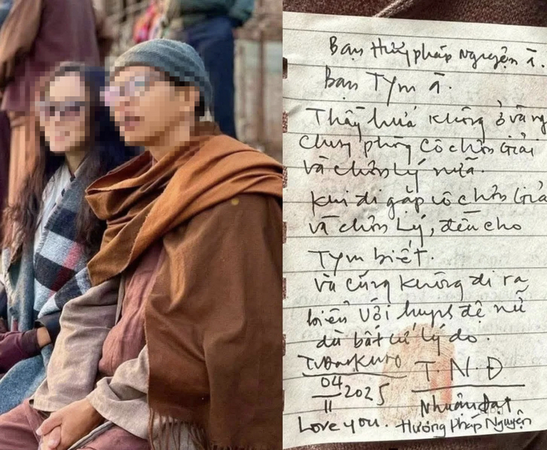 Bạn Hương pháp Nguyện à.
Bạn Tym à.
Thầy hứa không ở và ng
chung phòng cô chơn Giải
và chơn lý nữa.
khi đi gặp cô chơn Giải
và chơn lý, đều cho
Tym biết.
và cũng không đi ra
biển với huynh đệ nữ
dù bất cứ lý do.
04
11 2025
T.N.Đ
Nhuận đạt
Love you. Hương Pháp Nguyện